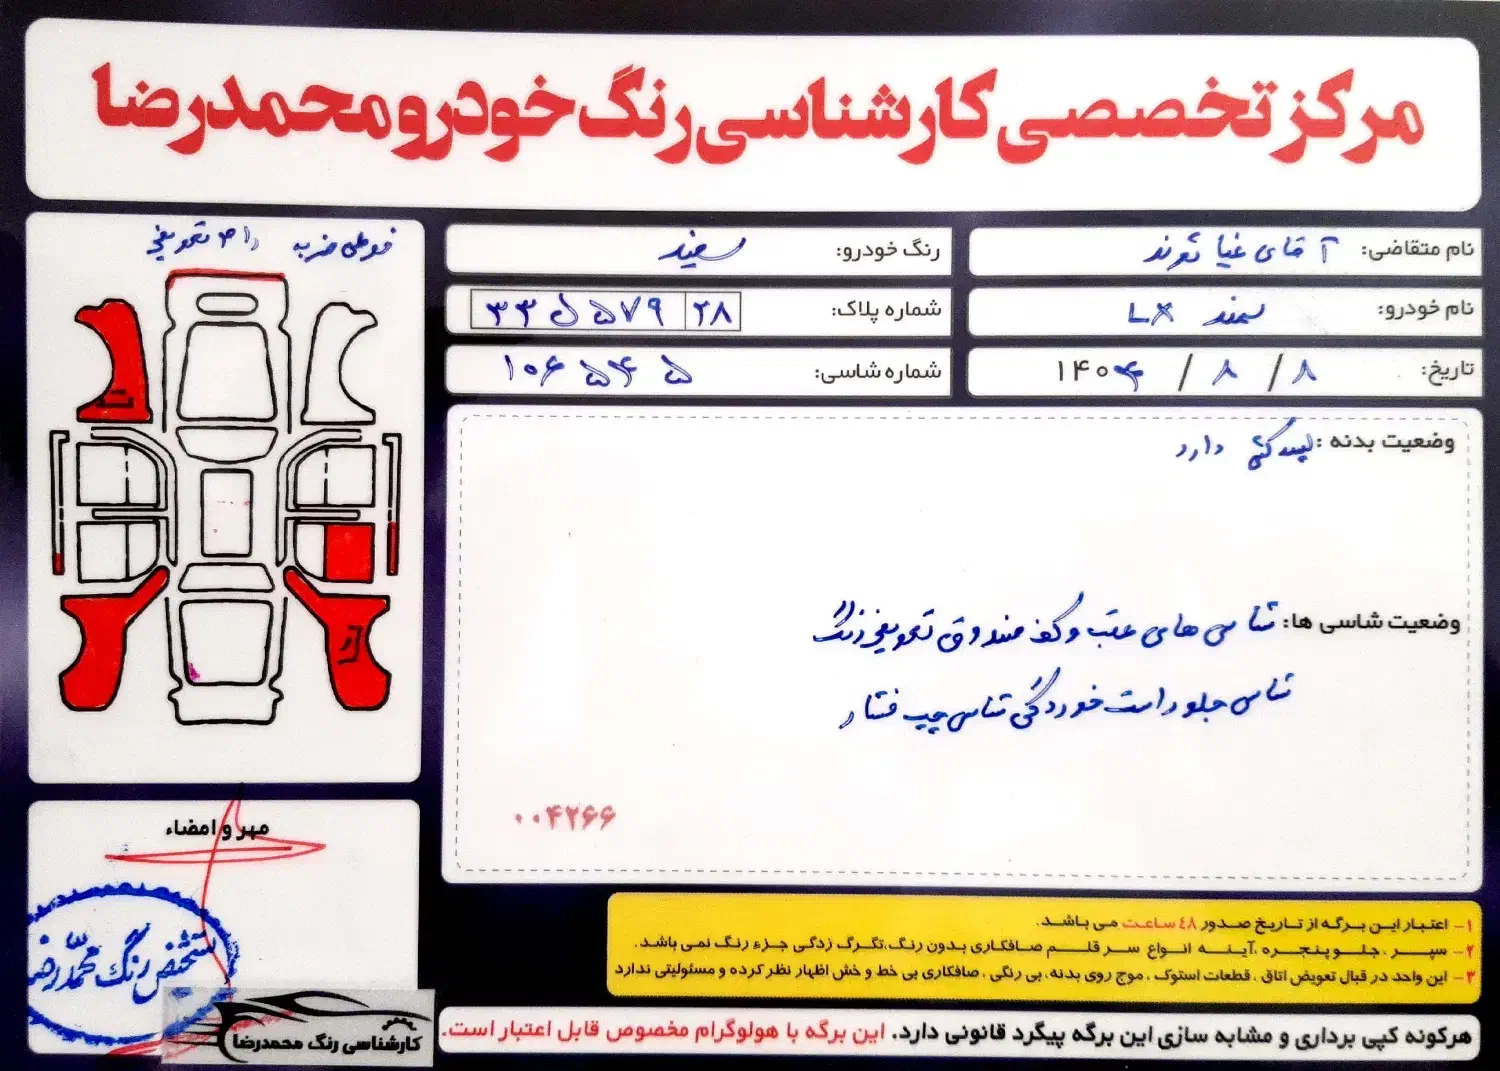 مرکز تخصصی کارشناسی رنگ خودرو محمدرضا
نام متقاضی: آقای غیاثوند
رنگ خودرو: سفید
نام خودرو: سمند LX
شماره پلاک: ۲۸ ۵۷۹ ل ۳۳
تاریخ: ۸ / ۸ / ۱۴۰۴
شماره شاسی: ۱۰۶۵۴۵
رام تعویض
ضربه
ت
وضعیت بدنه: لیسه‌گیری دارد
وضعیت شاسی ها: شاسی های عقب و کف صندوق تعویض رنگ
شاسی جلو راست خوردگی شاسی چپ فشار
۰۰۴۲۶۶
مهر و امضاء
تشخیص رنگ محمدرضا
کارشناسی رنگ محمدرضا
۱- اعتبار این برگه از تاریخ صدور ۴۸ ساعت می باشد.
۲- سپر، جلو پنجره، آینه انواع سر قلم صافکاری بدون رنگ، تگرگ زدگی جزء رنگ نمی باشد.
۳- این واحد در قبال تعویض اتاق، قطعات استوک، موج روی بدنه، بی رنگی، صافکاری بی خط و خش اظهار نظر کرده و مسئولیتی ندارد
هرگونه کپی برداری و مشابه سازی این برگه پیگرد قانونی دارد. این برگه با هولوگرام مخصوص قابل اعتبار است.